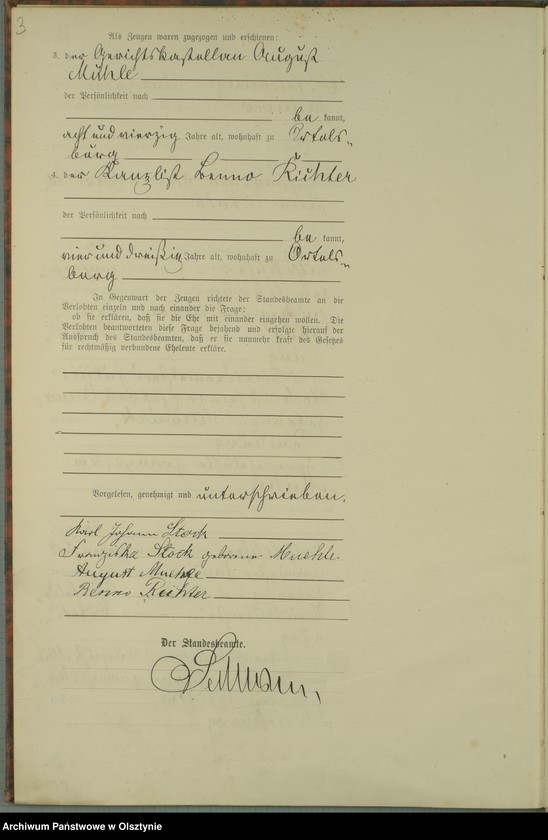 3
Als Zeugen waren zugezogen und erschienen:
3. der Gerichtskastellan August
Mühle
der Persönlichkeit nach
be kannt,
acht und vierzig Jahre alt, wohnhaft zu Ortels-
burg
4. der Kanzlist Benno Richter
der Persönlichkeit nach
be kannt,
vier und dreißig Jahre alt, wohnhaft zu Ortels-
burg
In Gegenwart der Zeugen richtete der Standesbeamte an die
Verlobten einzeln und nach einander die Frage:
ob sie erklären, daß sie die Ehe mit einander eingehen wollen. Die
Verlobten beantworteten diese Frage bejahend und erfolgte hierauf der
Ausspruch des Standesbeamten, daß er sie nunmehr kraft des Gesetzes
für rechtmäßig verbundene Eheleute erkläre.
Vorgelesen, genehmigt und unterschrieben.
Karl Johann Stock
Franziska Stock geborene Muehle
August Muehle
Benno Richter
Der Standesbeamte.
Archiwum Państwowe w Olsztynie